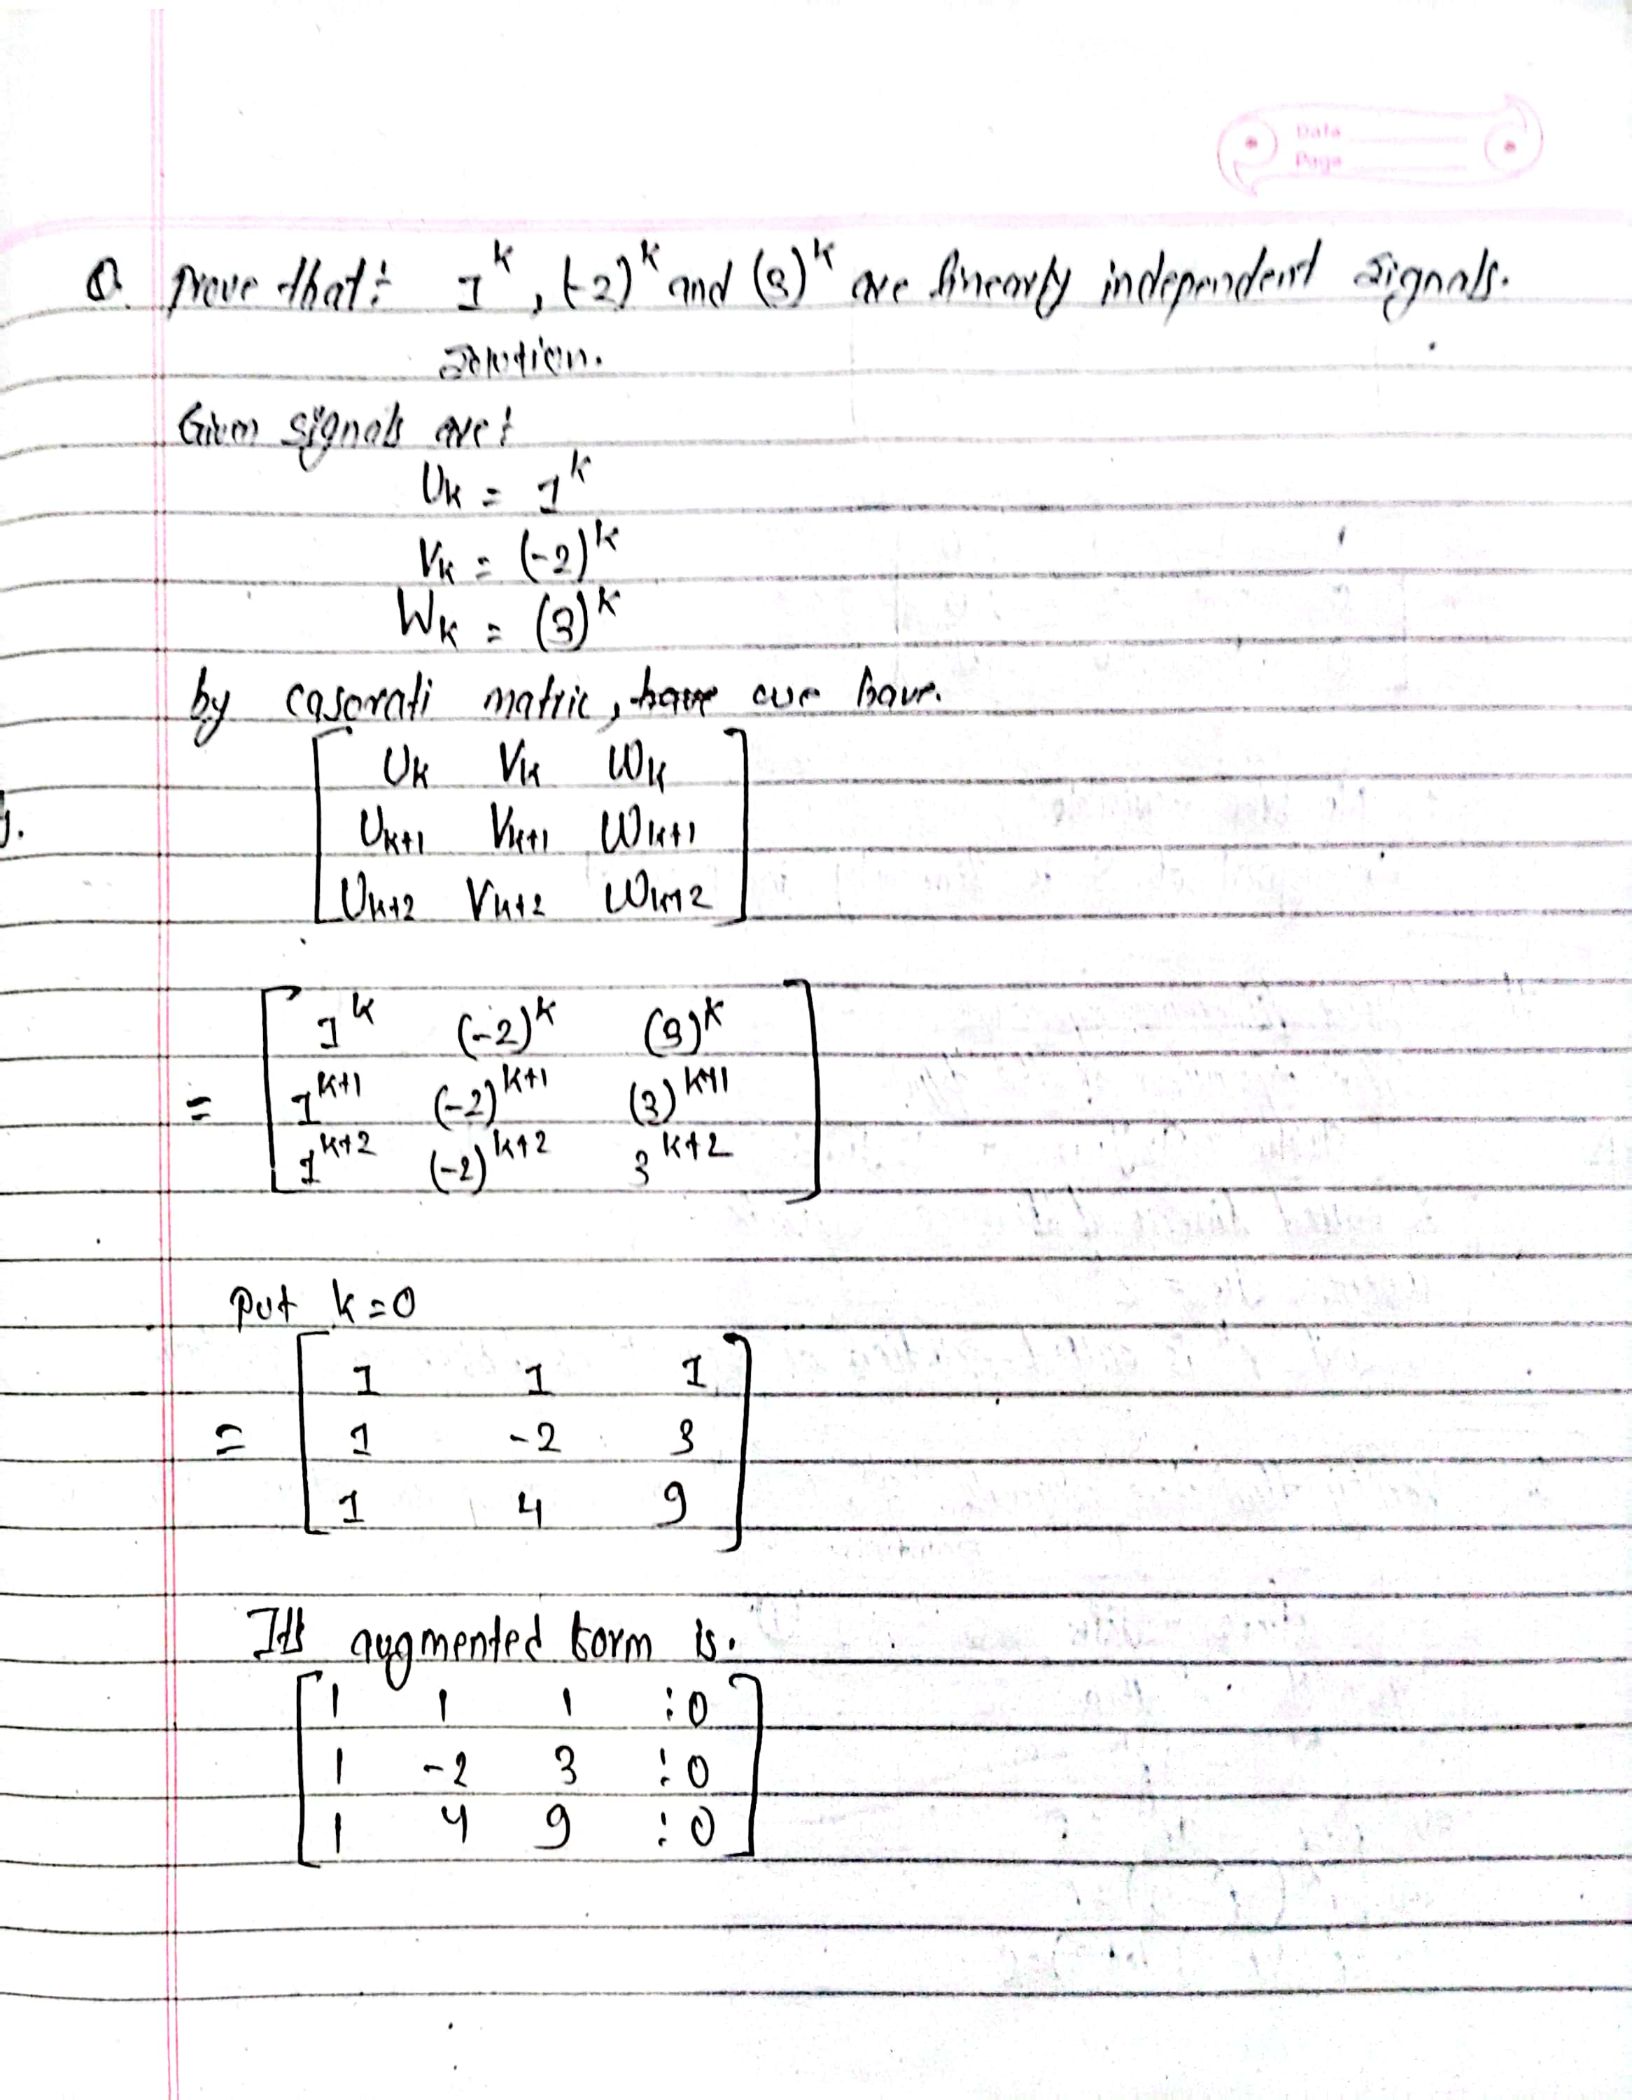 Data
Page
Q. prove that: 1^k, (-2)^k and (3)^k are linearly independent signals.
solution.
Given signals are:
Uk = 1^k
Vk = (-2)^k
Wk = (3)^k
by casorati matric, have we have.
[ Uk Vk Wk ]
[ Uk+1 Vk+1 Wk+1 ]
[ Uk+2 Vk+2 Wk+2 ]
= [ 1^k (-2)^k (3)^k ]
[ 1^k+1 (-2)^k+1 (3)^k+1 ]
[ 1^k+2 (-2)^k+2 3^k+2 ]
put k=0
= [ 1 1 1 ]
[ 1 -2 3 ]
[ 1 4 9 ]
Its augmented form is.
[ 1 1 1 :0 ]
[ 1 -2 3 :0 ]
[ 1 4 9 :0 ]